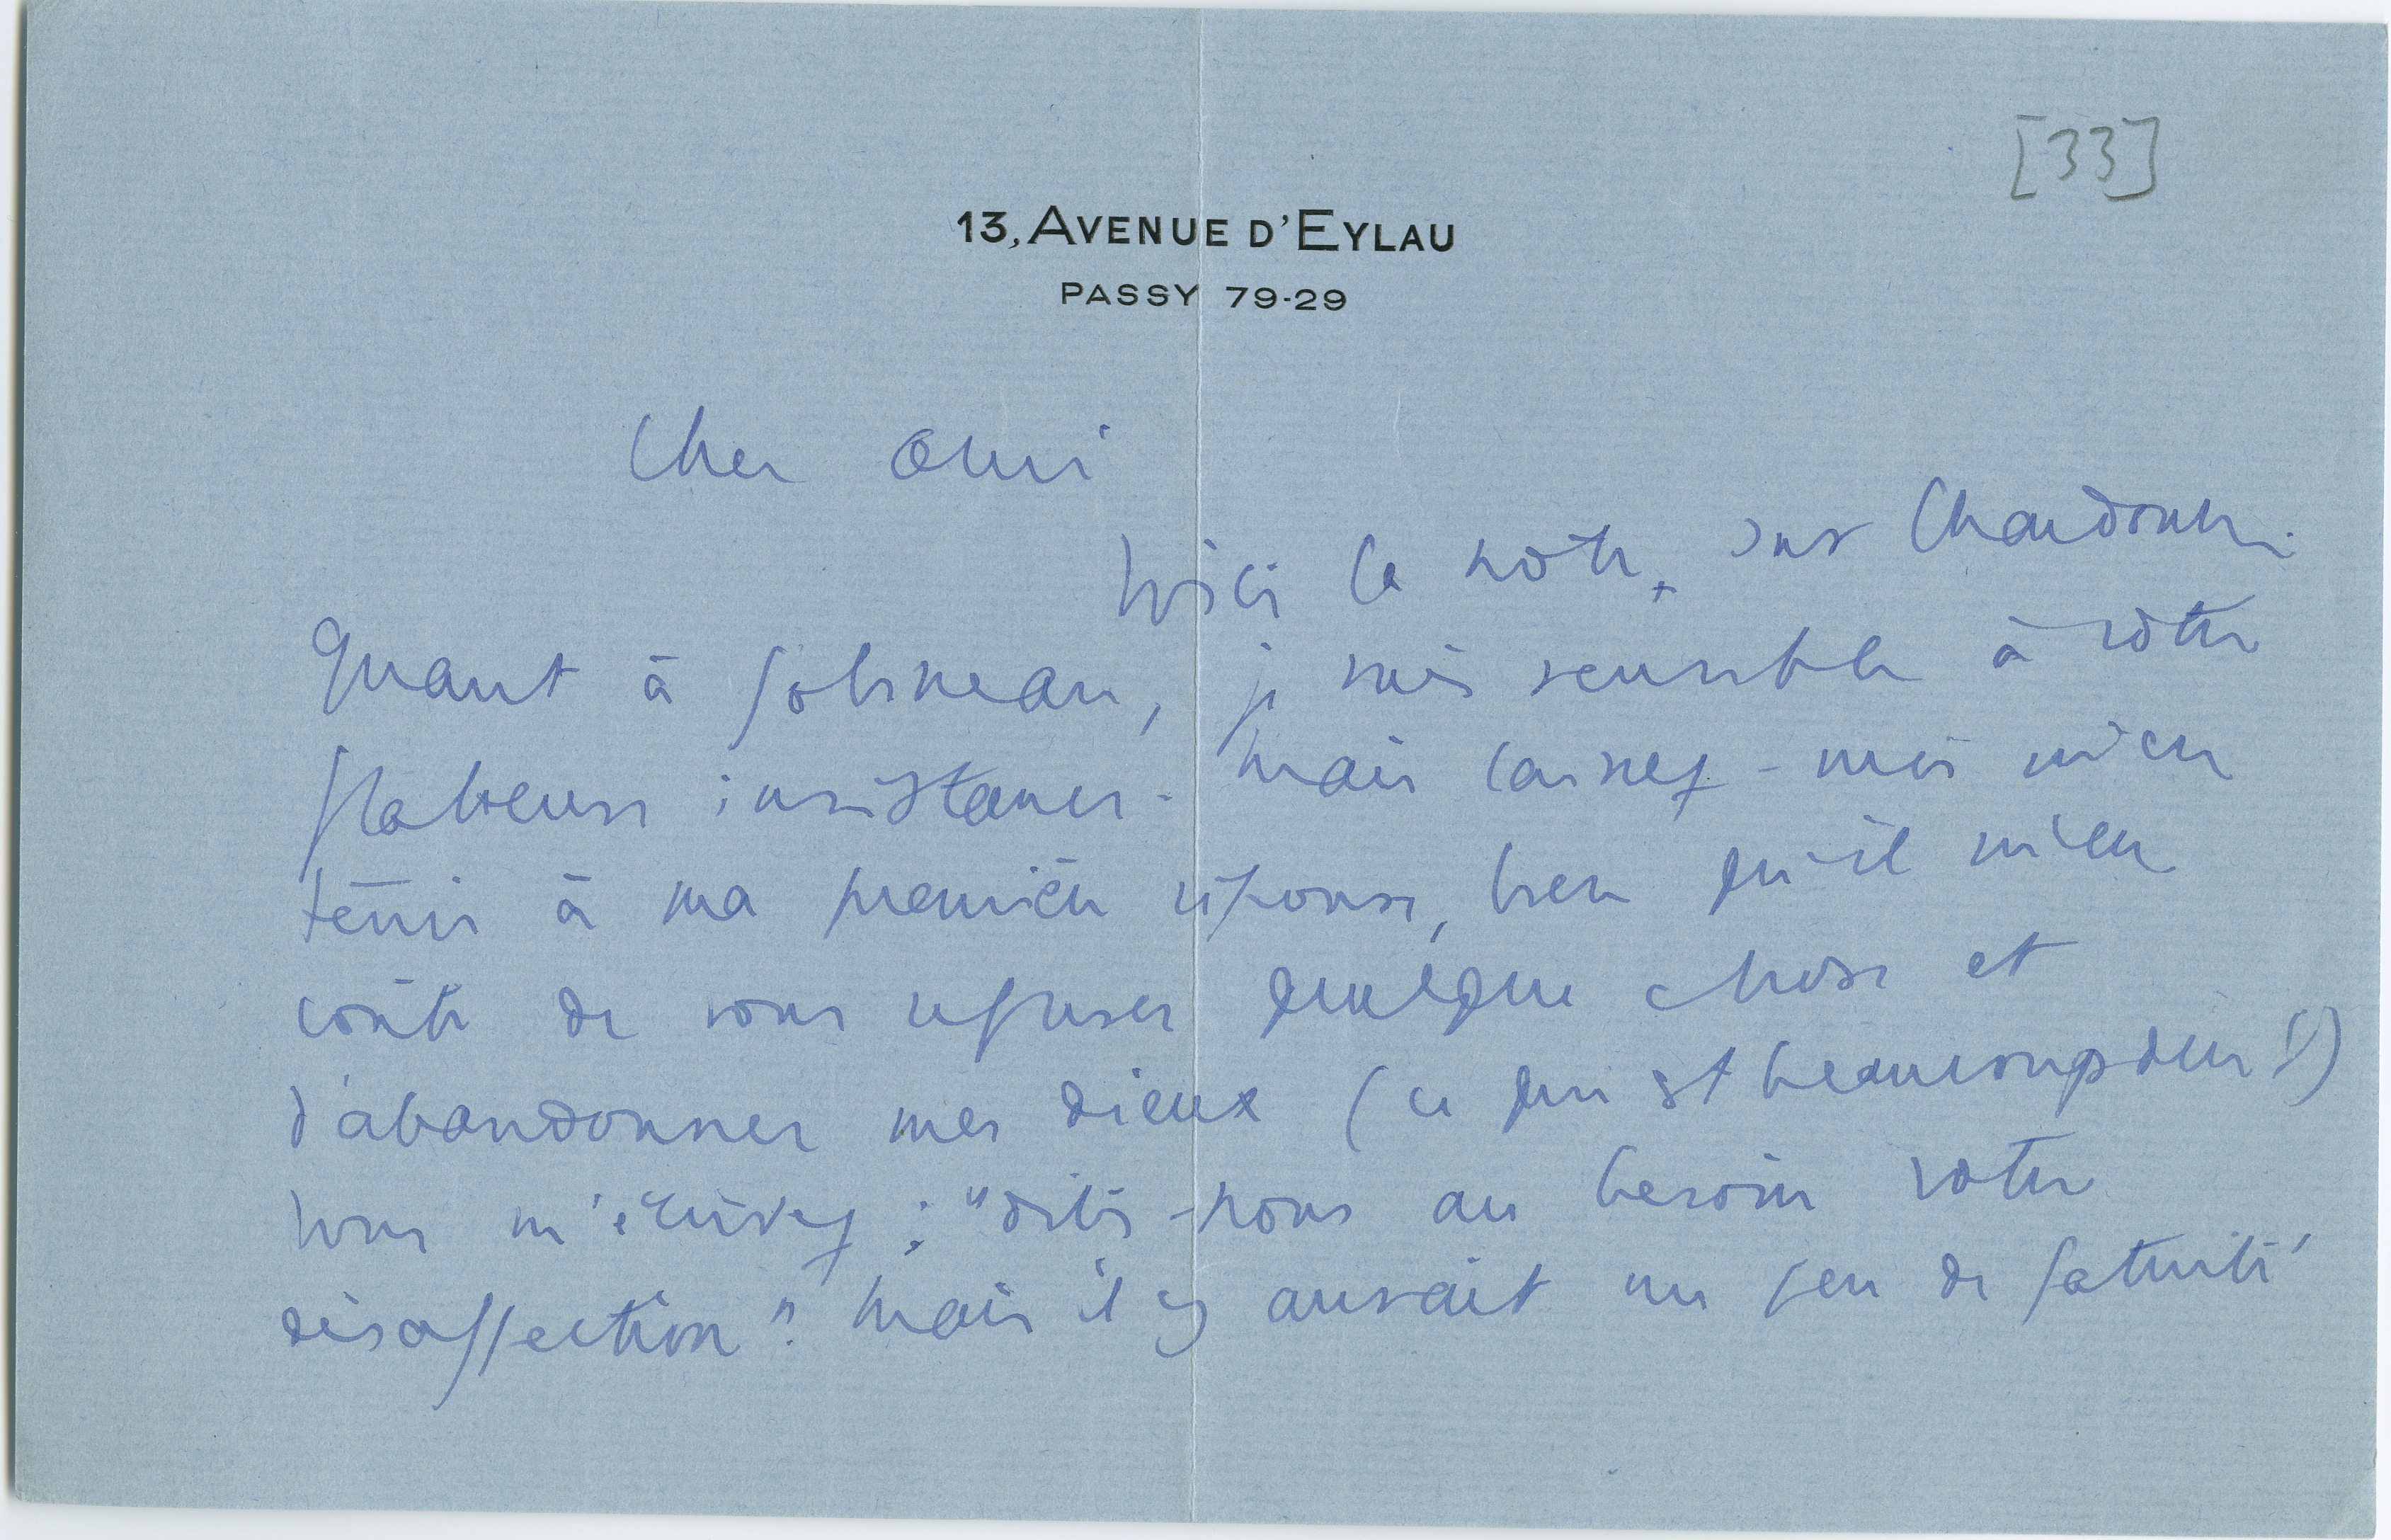 [33]
13, AVENUE D'EYLAU
PASSY 79-29
Cher ami
Voici la note sur Chardonne.
Quant à Gobineau, je suis sensible à votre
flatteuse insistance. Mais laissez-moi m'en
tenir à ma première réponse, bien qu'il m'en
coûte de vous refuser quelque chose et
d'abandonner mes dieux (ce qui est beaucoup dire !)
Vous m'écrivez : "dites-nous au besoin votre
désaffection". Mais il y aurait un peu de fatuité